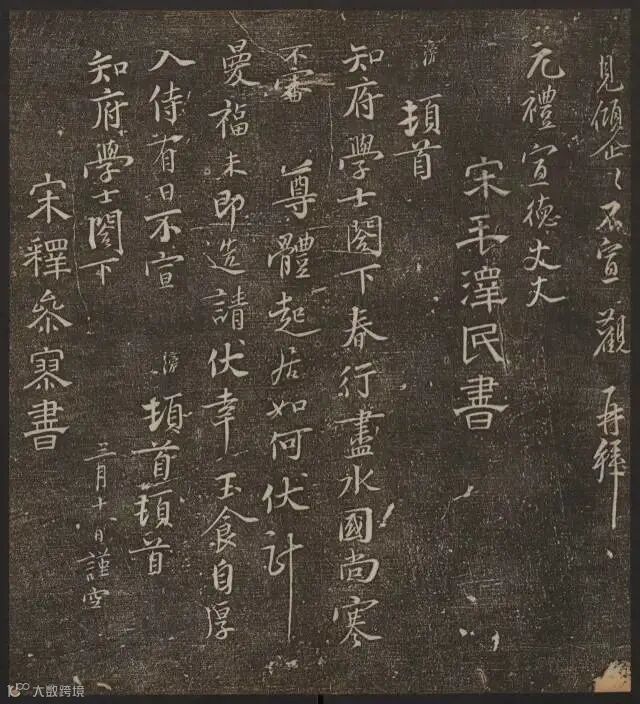 見傾企〻不宣 觀 再拜
元禮宣德丈丈
宋毛澤民書
滂 頓首
知府學士閣下春行盡水國尚寒
不審 尊體起居如何伏計
曼福未即造請伏幸 玉食自厚
入侍有日不宣 滂 頓首頓首
知府學士閣下
三月十八日謹空
宋釋參寥書
大數跨境